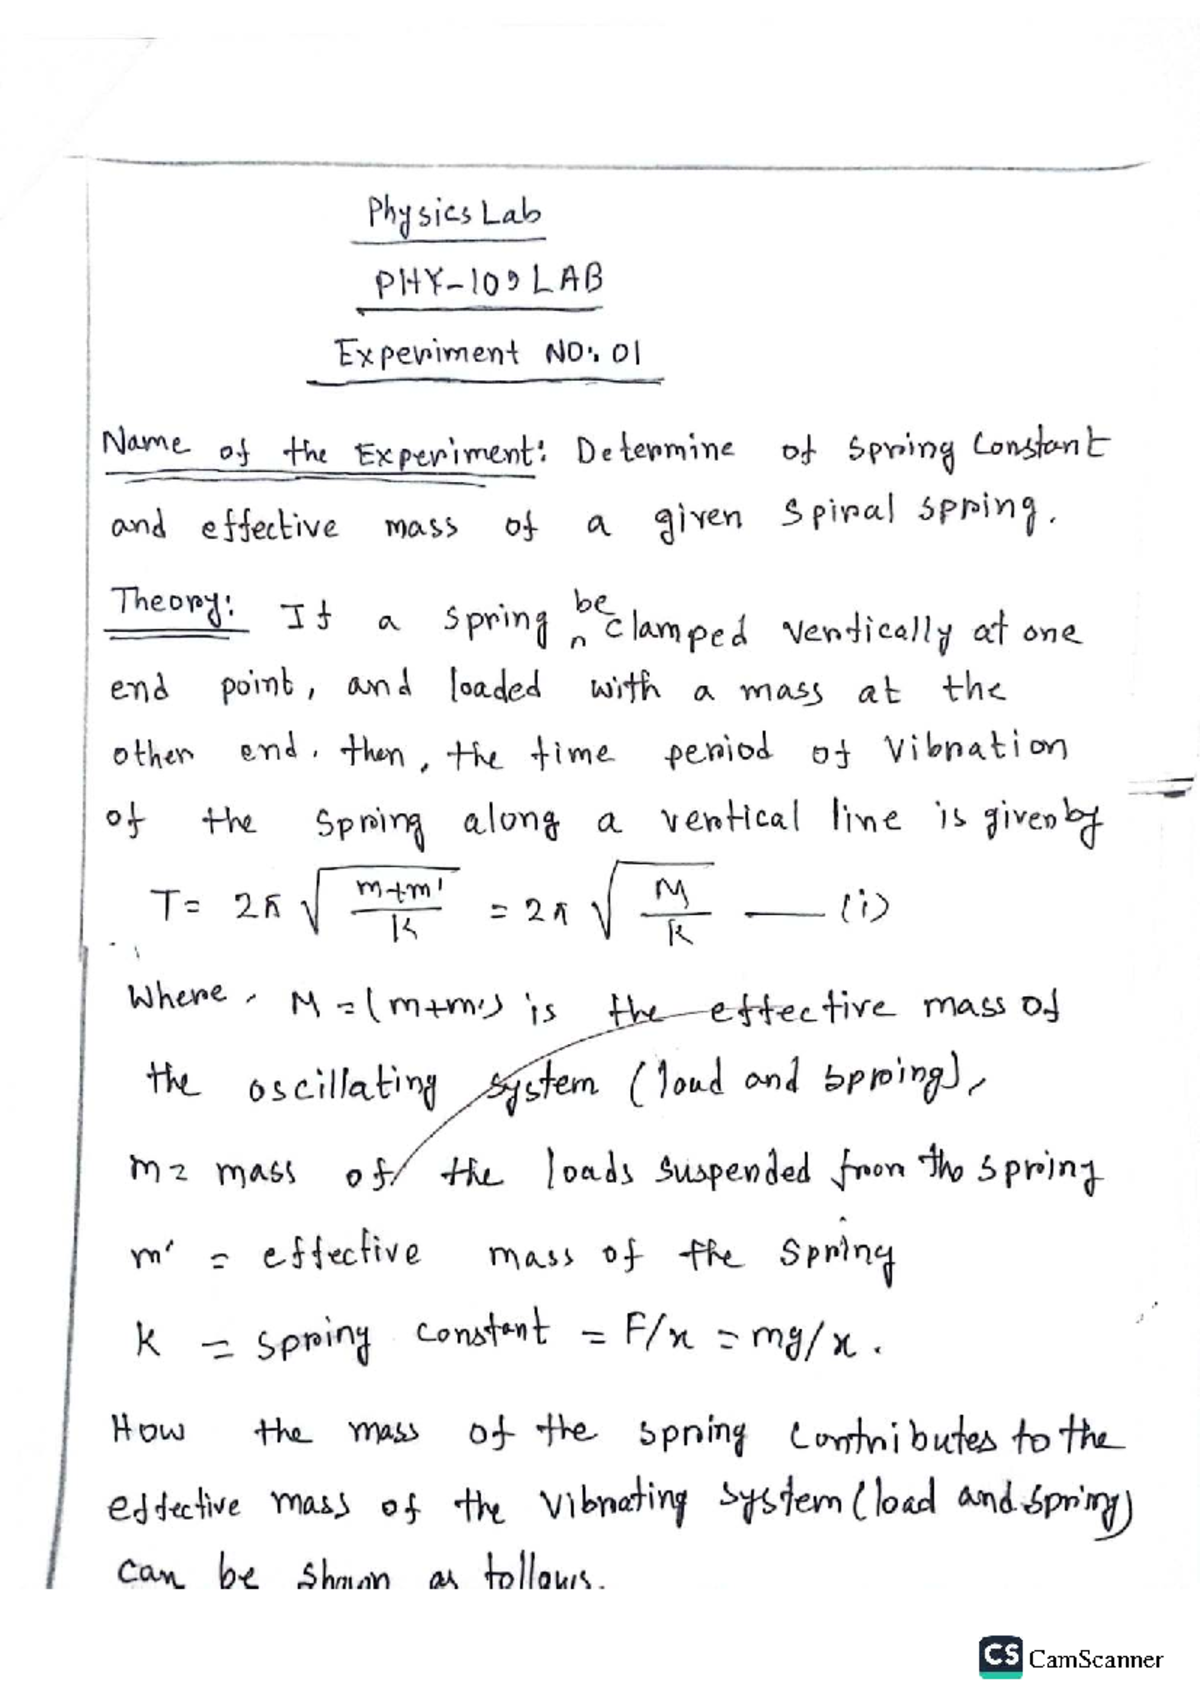 Physics Lab
PHY-109 LAB
Experiment NO: 01
Name of the Experiment: Determine of Spring Constant
and effective mass of a given Spiral spring.
Theory: If a spring be clamped vertically at one
end point, and loaded with a mass at the
other end. then, the time period of vibration
of the spring along a vertical line is given by
T = 2π √(m+m'/K) = 2π √(M/K) —— (i)
Where, M = (m+m') is the effective mass of
the oscillating system (loud and spring),
m = mass of the loads suspended from the spring
m' = effective mass of the spring
K = spring constant = F/x = mg/x.
How the mass of the spring contributes to the
effective mass of the vibrating system (load and spring)
can be shown as follows.
CS CamScanner